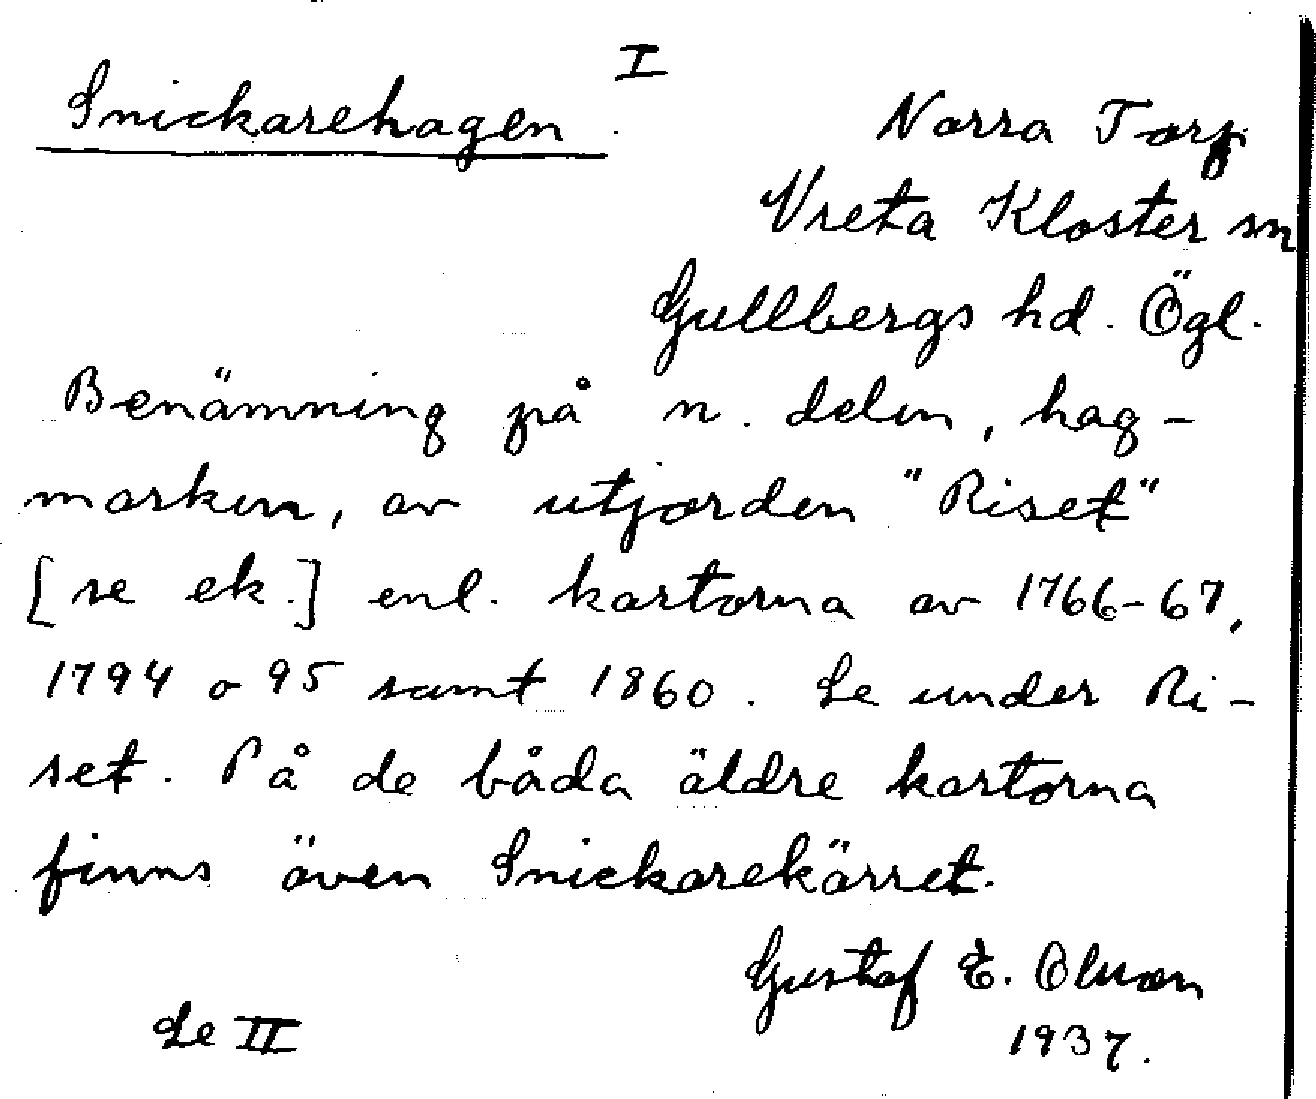 I
Snickarehagen.
Norra Torp
Vreta Kloster sn
Gullbergs hd. Ögl.
Benämning på n. delen, hag-
marken, av utjorden "Riset"
[se ek.] enl. kartorna av 1766-67,
1794 o 95 samt 1860. Se under Ri-
set. På de båda äldre kartorna
finns även Snickarekärret.
Gustaf E. Olsson
1937.
Se II